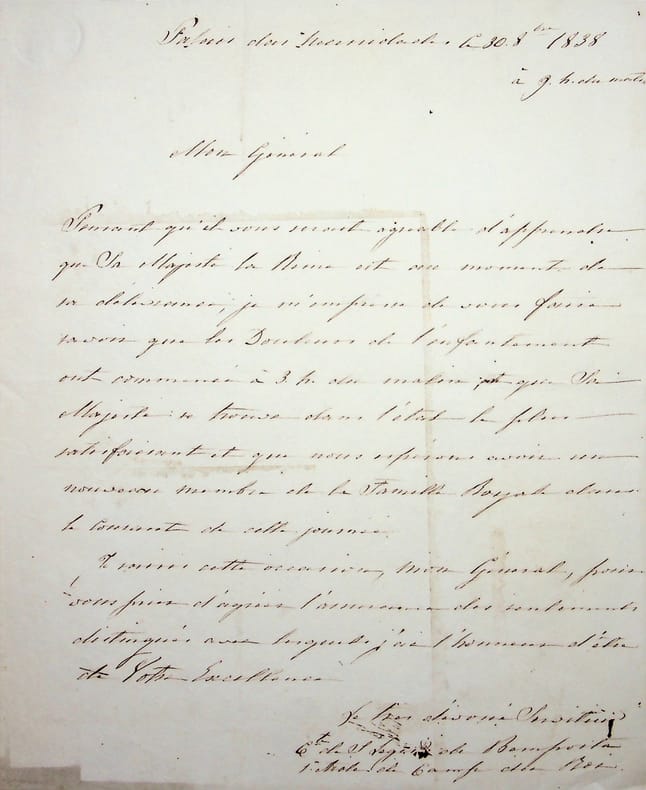 Palais das Necessidades. Le 30. 8bre 1838
à 9 h. du matin
Mon Général
Pensant qu'il vous serait agréable d'apprendre
que Sa Majesté la Reine est au moment de
sa délivrance, je m'empresse de vous faire
savoir que les Douleurs de l'enfantement
ont commencé à 3 h. du matin, et que Sa
Majesté se trouve dans l'état le plus
satisfaisant et que nous espérons avoir un
nouveau membre de la Famille Royale dans
le courant de cette journée.
Je saisis cette occasion, Mon Général, pour
vous prier d'agréer l'assurance des sentiments
distingués avec lesquels j'ai l'honneur d'être
de Votre Excellence
Le très dévoué Serviteur
Cte de de Bomposta
Aide de Camp du Roi